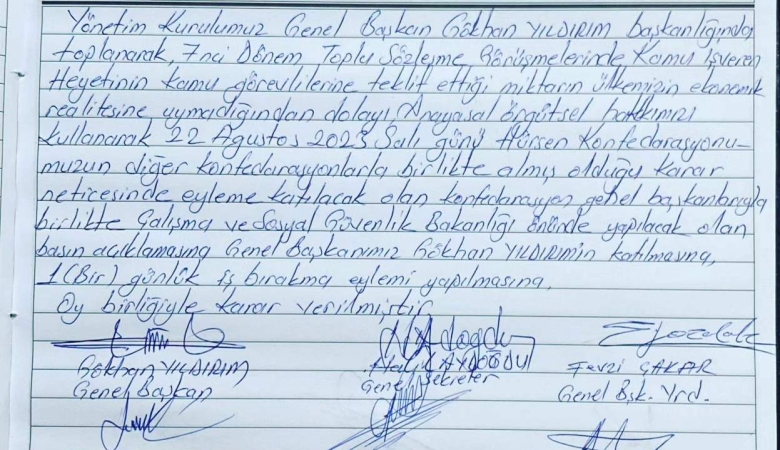 Yönetim Kurulumuz Genel Başkan Gökhan YILDIRIM başkanlığında
toplanarak, 7nci Dönem Toplu Sözleşme Görüşmelerinde Kamu İşveren
Heyetinin kamu görevlilerine teklif ettiği miktarın ülkemizin ekonomik
realitesine uymadığından dolayı, Anayasal örgütsel hakkımızı
kullanarak 22 Ağustos 2023 Salı günü Hürsen Konfedarasyonu-
muzun diğer konfedarasyonlarla birlikte almış olduğu karar
neticesinde eyleme katılacak olan konfedarasyon genel başkanlarıyla
birlikte Çalışma ve Sosyal Güvenlik Bakanlığı önünde yapılacak olan
basın açıklamasına Genel Başkanımız Gökhan YILDIRIM'ın katılmasına,
1 (Bir) günlük iş bırakma eylemi yapılmasına,
Oy birliğiyle karar verilmiştir.
Gökhan YILDIRIM
Genel Başkan
AYDOĞDU
Genel Sekreter
Fevzi ÇAKAR
Genel Bşk. Yrd.